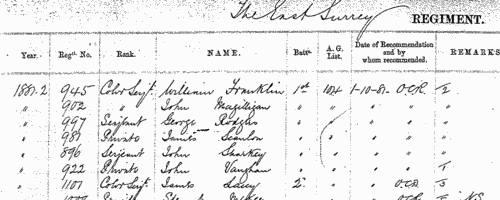 The East Surrey REGIMENT.
Year. Regtl. No. Rank. NAME. Battn. A. G. List. Date of Recommendation and by whom recommended. REMARKS
1881-2 945 Color Serjt. William Franklin 1st 104 1-10-81- O.C.R.
" 902 " John Magilligan " " " " "
" 997 Serjeant George Rodgers " " " "
" 987 Private James Scanlon " " " "
" 896 Serjeant John Sharkey " " " "
" 922 Private John Vaughan " " " "
" 1101 Color Serjt. James Lacey 2 " " O.C.R.